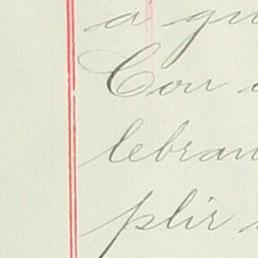 a gu
Con
lebran
plir